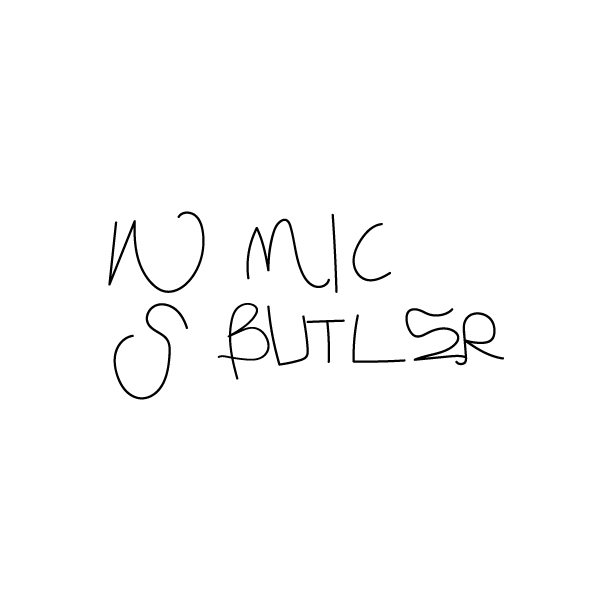 W MIC
S BUTLER